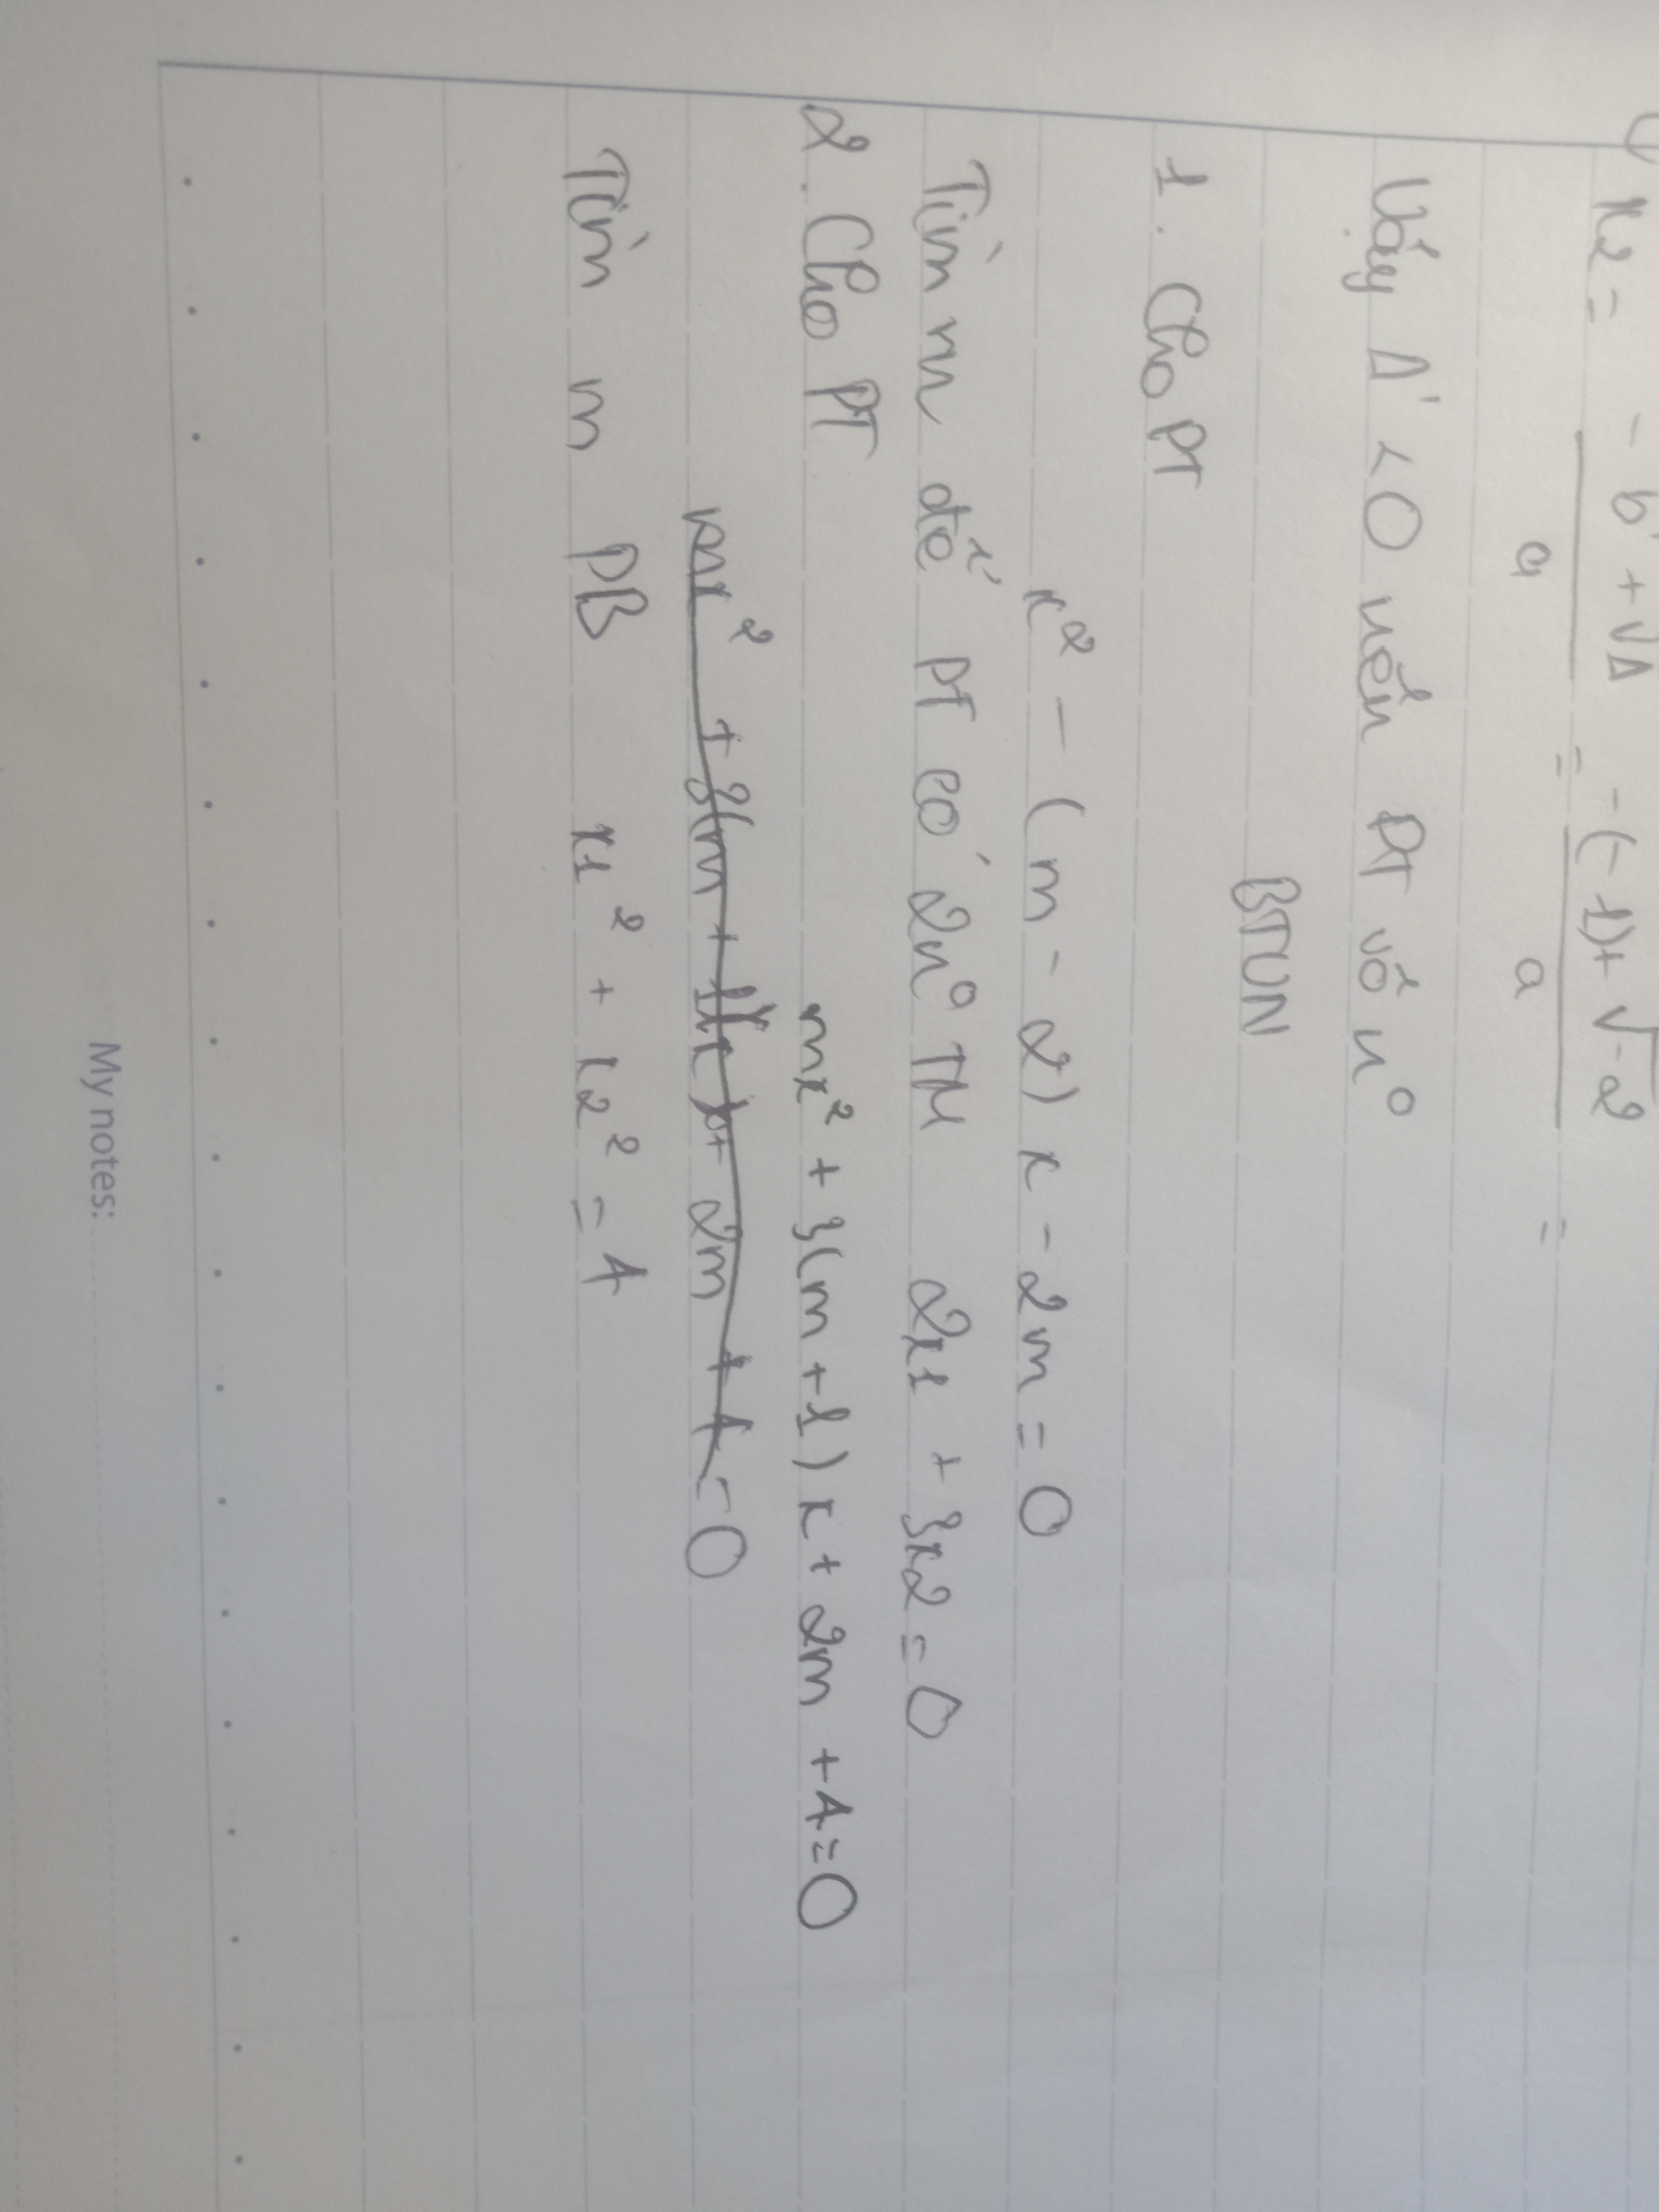 x2 = - b' + √Δ / a = -(-1)+ √-2 / a =
Vậy Δ' < 0 nên PT vô n⁰
BTVN
1. Cho PT
x² - (m - 2) x - 2m = 0
Tìm m để PT có 2n⁰ TM 2x1 + 3x2 = 0
2. Cho PT mx² + 3(m +1) x + 2m + 4 = 0
mx² + 3(m + 1)x + 2m + 4 = 0
Tìm m PB x1² + x2² = 4
My notes: